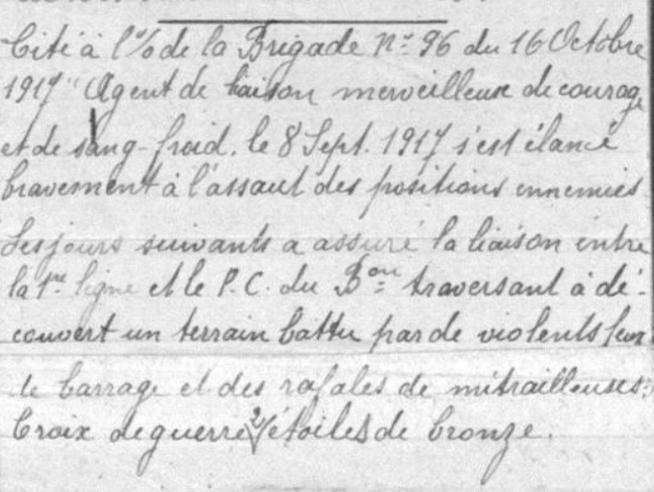 Cité à l'o/o de la Brigade n° 96 du 16 Octobre
1917 "Agent de liaison merveilleux de courage
et de sang-froid. le 8 Sept. 1917 s'est élancé
bravement à l'assaut des positions ennemies
Les jours suivants a assuré la liaison entre
la 1re ligne et le P.C. du Bon traversant à dé-
couvert un terrain battu par de violents feux
de barrage et des rafales de mitrailleuses.
Croix de guerre 2 étoiles de bronze.